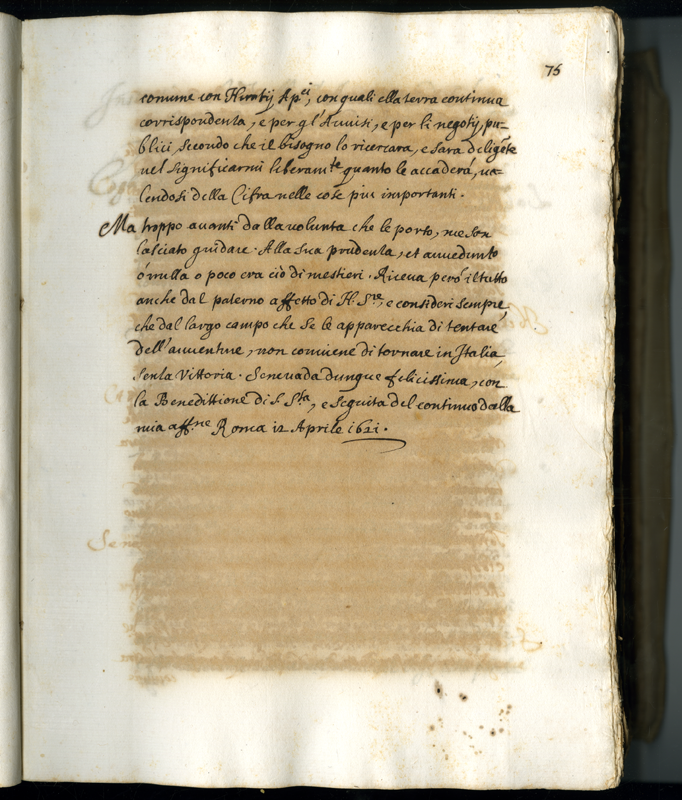 75
comune con Nuntij Ap.ci, con quali ella terra continua
corrispondenza, e per gl'Avvisi, e per li negotij pu-
blici, secondo che il bisogno lo ricercara, e sara diligẽte
nel significarmi liberam.te quanto le accaderà, va-
lendosi della Cifra nelle cose piu importanti.
Ma troppo avanti dalla volunta che le porto, me son
lasciato guidare. Alla sua prudenza, et avvedim.to
ò nulla o poco era ciò di mestieri. Riceva però il tutto
anche dal paterno affetto di N. S.re, e consideri sempre,
che dal largo campo che se le apparecchia di tentare
dell'avventure, non conviene di tornare in Italia,
senza Vittoria. Se ne vada dunque felicissima, con
la Benedittione di S. S.tà, e seguita del continuo dalla
mia aff.ne Roma 12 Aprile 1621.